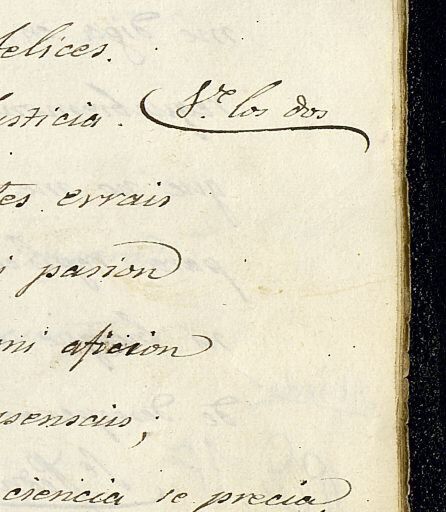 felices.
usticia. V.e los dos
tes errais
i pasion
mi aficion
sensais;
ciencia se precia